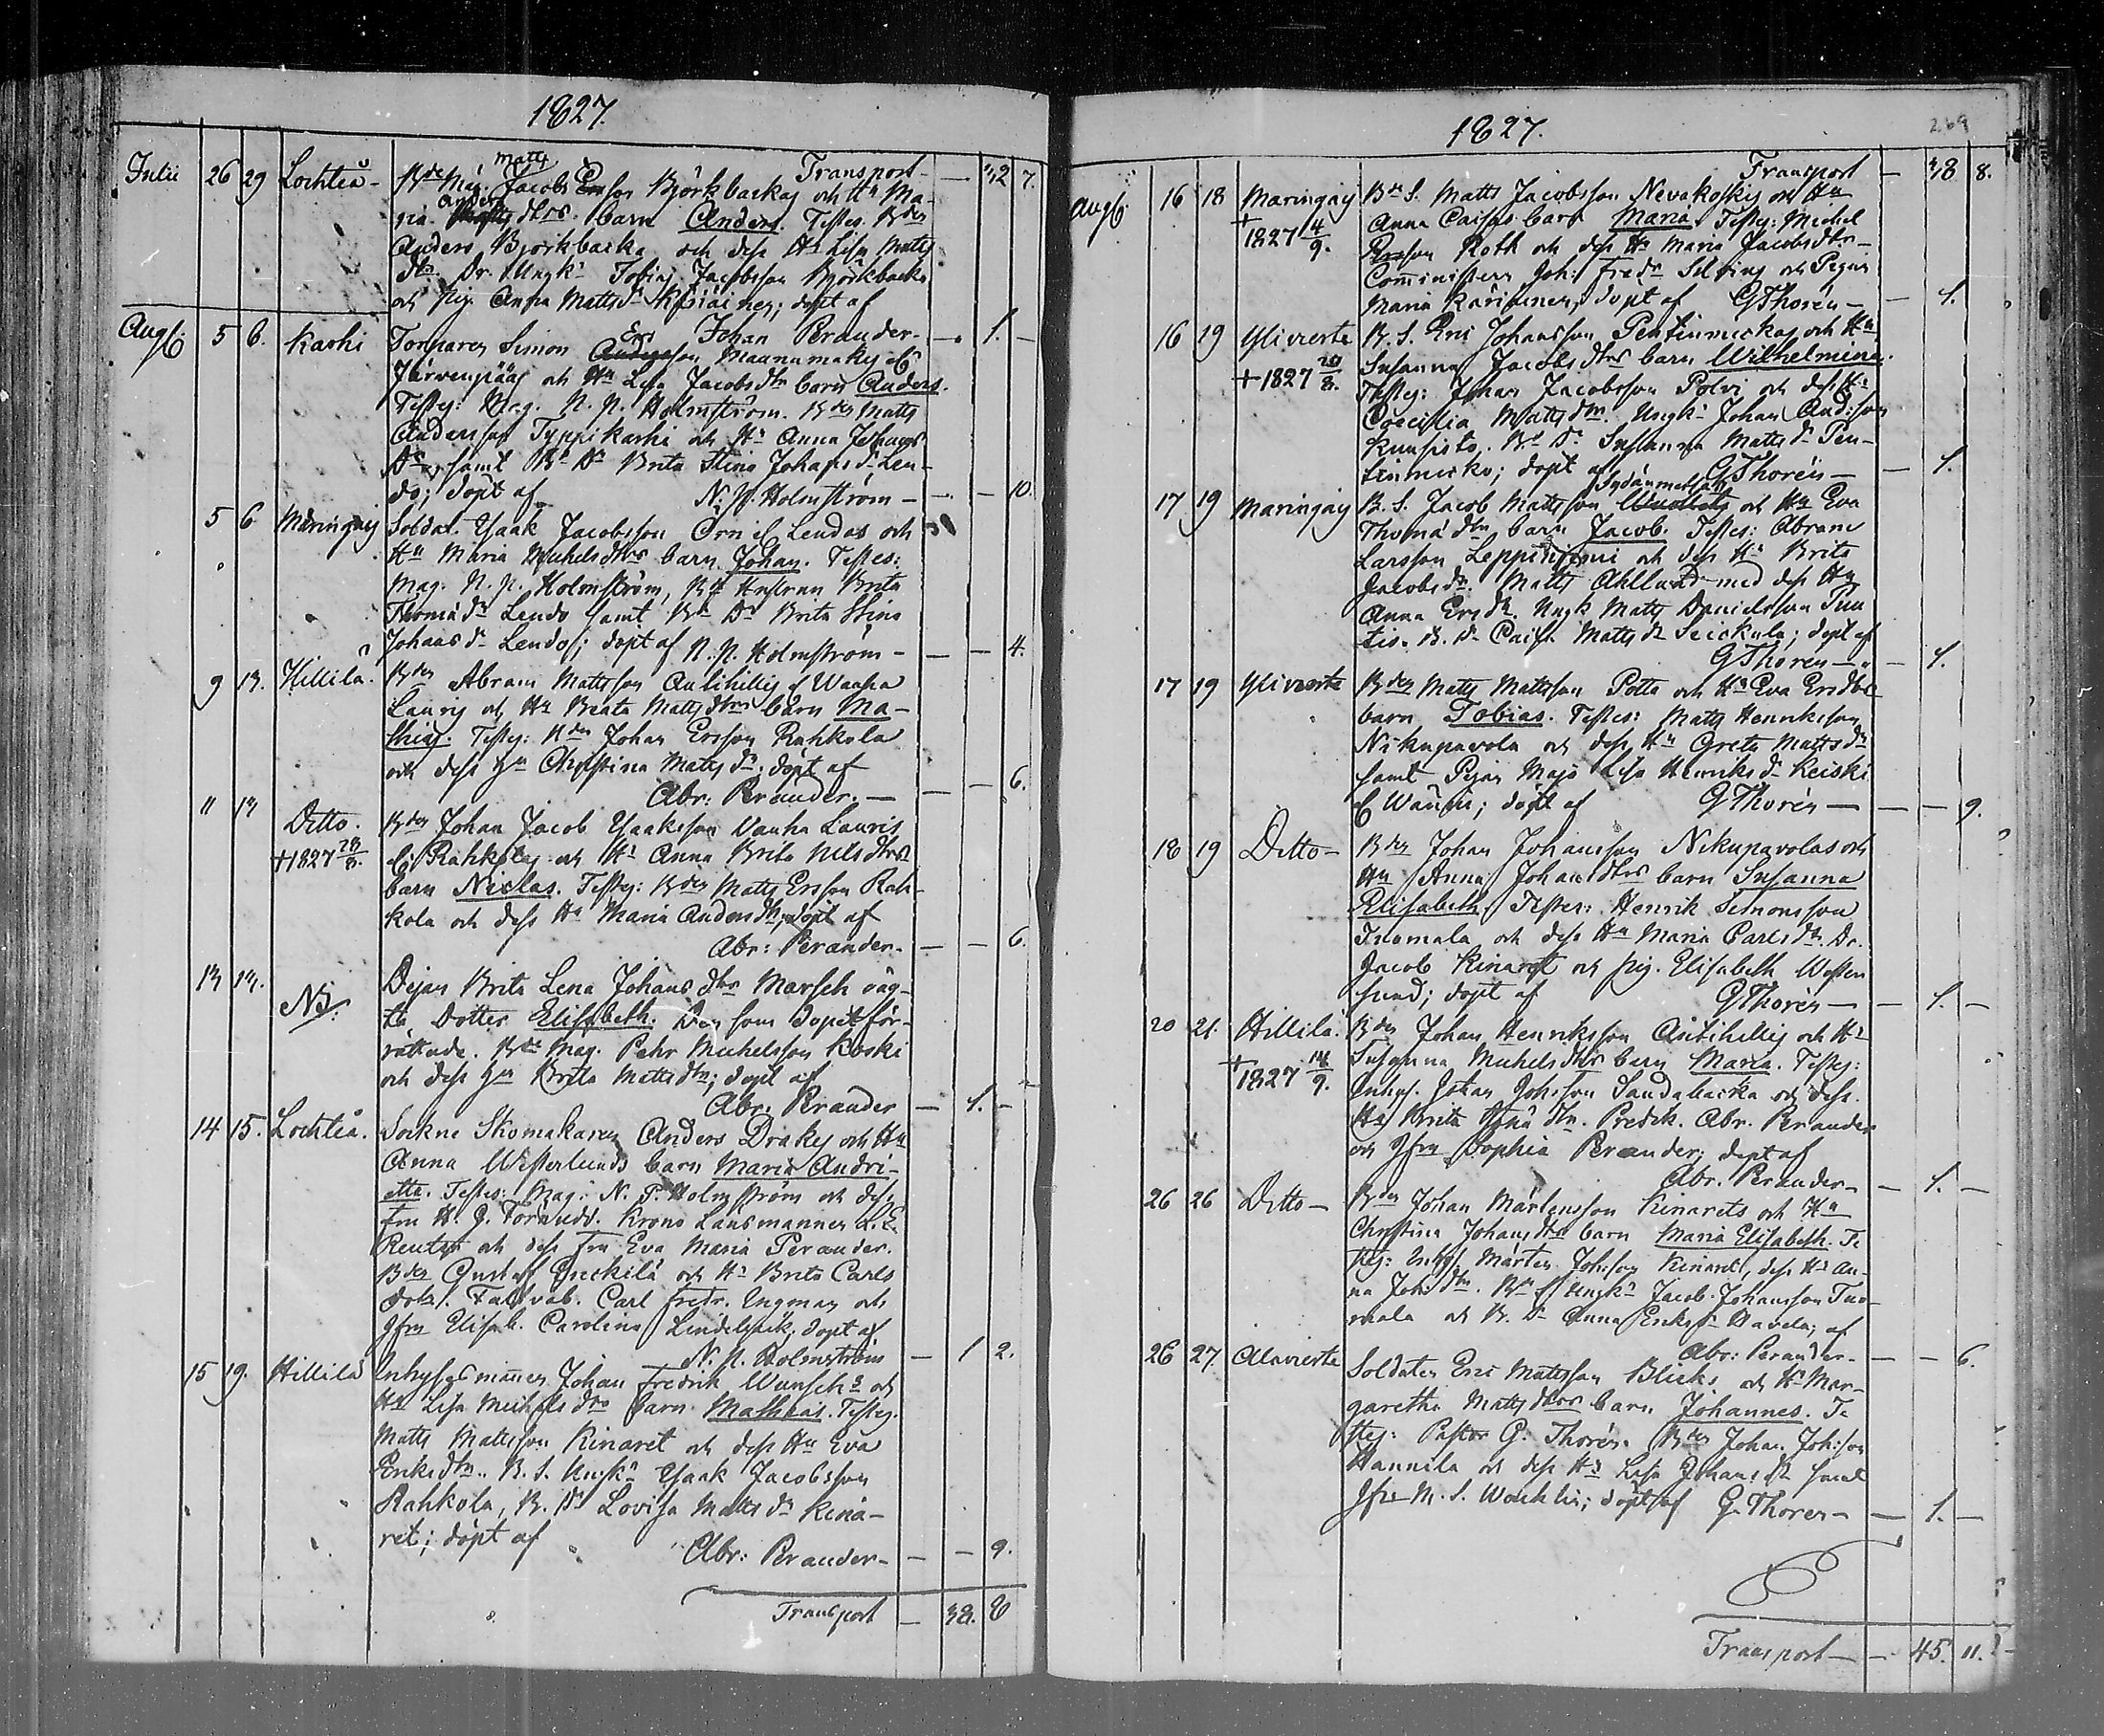 1827.
Transport — 32 7.
Julii 26 29 Lochteå - Matts
Jacobs son Björkbackas och Hu Ma-
Anders
ria dtrs barn Anders. Testes: Bden
Anders Björkbacka och dess Hu Lisa Matts
dtr. Dr. Ungk: Tobias Jacobsson Björkbacka
och Pig. Anna Matts dr ; döpt af
Johan Perander - — 1. —
Aug. 5 6. Karhi Torparen Simon Ers son Maunumakis
Järvenpääs och Hu Lisa Jacobs dtrs barn Anders.
Testes: Mag. N. P. Holmström. Bden Matts
Andersson Typpikarhi och Hu Anna Johans
Dr, samt Bd Dr Brita Stina Johans dr Len-
do; döpt af N. P. Holmström — — — 10.
5 6 Maringais Soldat. Isaak Jacobsson Orn Lendos och
Hu Maria Michels dtrs barn Johan. Testes:
Mag. N. P. Holmström, Hustrun Brita
Thoma dr Lendo samt Bd Dr Brita Stina
Johans dr Lendo; döpt af N. P. Holmström — — — 4.
9 13. Hillilä. Bden Abram Mattsson Anttihillis Wanha
Lauris och Hu Beata Matts dtrs barn Ma-
thias. Testes: Bden Johan Ersson Rahkola
och dess Hu Christina Matts dr; döpt af
Abr: Perander. — — — 6.
11 13 Ditto. Bden Johan Jacob Isaaksson Vanha Lauris
+ 1827 28/8. Rahkolas och Hu Anna Brita Nils dtrs
barn Niclas. Testes: Bden Matts Ersson Rah-
kola och dess Hu Maria Anders dtr; döpt af
Abr: Perander. — — 6.
13 13. NB. Pigan Brita Lena Johans dtrs Marsch oäg-
ta Dotter Elisabeth. Den som dopet för-
rättade. Mag. Pehr Michelsson Koski
och dess Hu Brita Matts dtr; döpt af
Abr. Perander — 1. —
14 15. Lochteå. Sockne Skomakaren Anders Drakes och Hu
Anna Westerlunds barn Maria Andri-
etta. Testes: Mag: N. P. Holmström och dess
Fru H. G. Forsudd. Krono Länsmannen L. E.
och dess Fru Eva Maria Perander.
Bden Gustaf och Hu Brita Carls
dotr. Carl Fredr. Ingman och
Jfru Elisab. Carolina Lindebäck; döpt af
N. P. Holmström — 1 2.
15 19. Hillilä Inhysesmannen Johan Fredrik Wunsch och
Hu Lisa Michels dtrs barn Mathias. Testes.
Matts Mattsson Kinaret och dess Hu Eva
Eriks dtr. B. S. Ungk: Isaak Jacobsson
Rahkola, B. Dr Lovisa Matts dr Kina-
ret; döpt af
Abr: Perander — — — 9.
Transport — 38. 8
1827. 269
Transport — 38 8.
Aug. 16 18 Maringais Bd S. Matts Jacobsson Nevakoskis och Hu
+ 1827 4/9. Anna Caisas barn Maria. Testes: Michel
son Roth och dess Hu Maria Jacobs dtr
Comministern Joh: Fredr och Pigan
Maria Karhinen; döpt af G Thorén — — 1.
16 19 Ylivieska B. S. Eric Johansson Pentinmickas och Hu
+ 1827 20/8. Susanna Jacobs dtrs barn Wilhelmina.
Testes: Johan Jacobsson Polvi och dess Hu
Coecilia Matts dtr. Ungk: Johan Anders son
Kuusisto. B. Dr Susanna Matts dr Pen-
tinmicko; döpt af G Thorén — — 1.
17 19 Maringais B. S. Jacob Mattsson Sydänmetsäs och Hu Eva
Thoma dtrs barn Jacob. Testes: Abram
Larsson Leppiniemi och dess Hu Brita
Jacobs dr. Matts Ahllund med dess Hu
Anna Ers dr. Ungk Matts Danielsson Puu
tio. B. Dr Caisa Matts dr Seickula; döpt af
G Thorén — — 1.
17 19 Ylivieska Bden Matts Mattsson Potta och Hu Eva Ersdtrs
barn Tobias. Testes: Matts Henriksson
Nikupavola och dess Hu Greta Matts dr
samt Pigan Maja Lisa Henriks dr Keiski
; döpt af G Thorén — — — 9.
18 19 Ditto — Bden Johan Johansson Nikupavolas och
Hu Anna Johans dtrs barn Susanna
Elisabeth. Testes: Henrik Simonsson
Tuomala och dess Hu Maria Carls dr. Dr.
Jacob Kinaret och Pig. Elisabeth Westen
sund; döpt af G Thorén — — 1. —
20 21. Hillilä Bden Johan Henriksson Anttihillis och Hu
+ 1827 14/9. Susanna Michels dtrs barn Maria. Testes:
Inhys. Johan Johsson Sandabacka och dess
Hu Brita dtr. Predik. Abr. Perander
och Jfru Sophia Perander; döpt af
Abr. Perander — — 1. —
26 26 Ditto — Bden Johan Mårtensson Kinarets och Hu
Christina Johans dtrs barn Maria Elisabeth. Te
stes: Inhys. Mårten Johsson Kinaret, dess Hu An-
na Joh dtr. Ungk: Jacob Johansson Tuo-
mala och B. Dr Anna Eriks dr Havela; af
Abr: Perander — — — 6.
26 27. Alavieska Soldaten Eric Mattsson Blicks och Hu Mar-
garetha Matts dtrs barn Johannes. Te
stes: Pastor G. Thorén. Bden Johan Johsson
Hannila och dess Hu Lisa Johans dr samt
Jfru M. S. Wacklin; döpt af G. Thorén — — 1. —
Transport — — 45. 11.